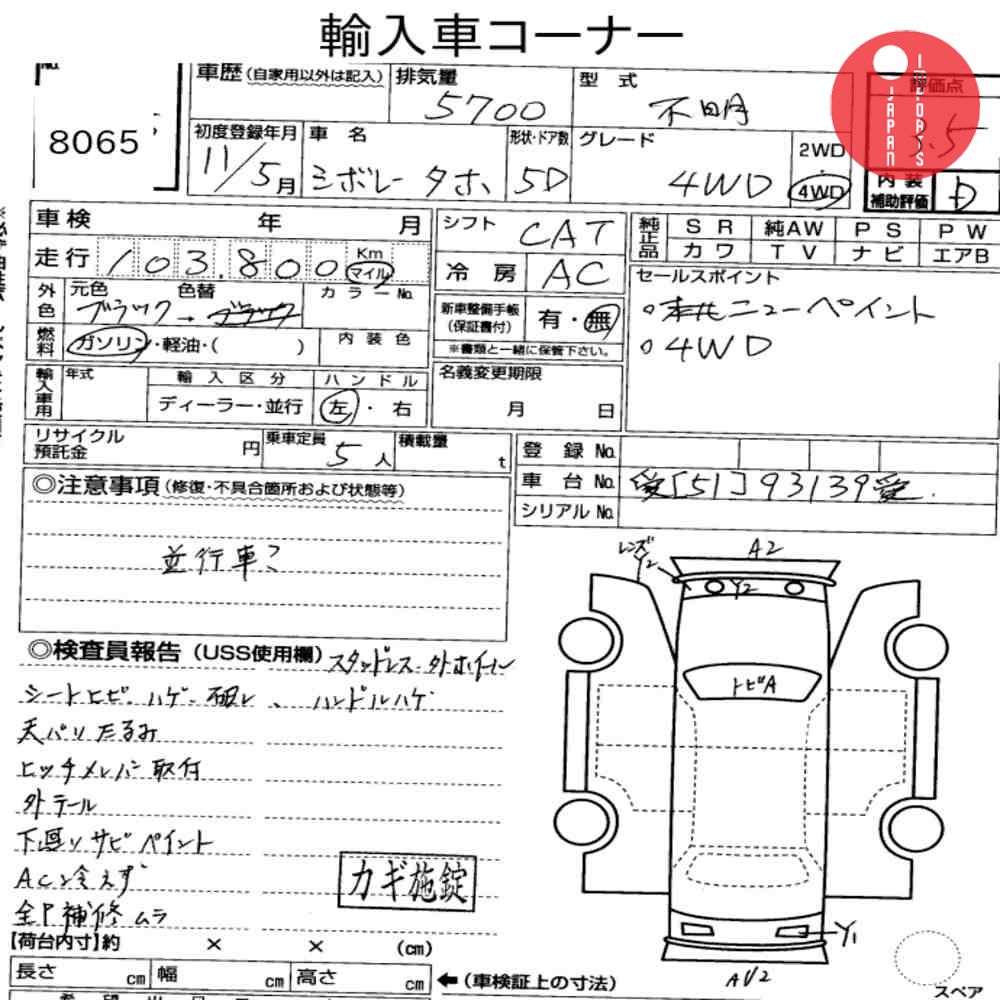 輸入車コーナー
IMPORTS
JAPAN
No.
8065
車歴(自家用以外は記入)
排気量
5700
型式
不明
評価点
3.5
初度登録年月
11/5月
車名
シボレー タホ
形状・ドア数
5D
グレード
4WD
2WD
・
4WD
内装
補助評価
D
車検 年 月
走行 103,800 Km
マイル
外色 元色 色替 カラーNo.
ブラック→ブラック
燃料 ガソリン・軽油・( )
内装色
輸入車用 年式
輸入区分
ディーラー・並行
ハンドル
左・右
シフト CAT
冷房 AC
新車整備手帳
(保証書付)
有・無
※書類と一緒に保管下さい。
名義変更期限
月 日
純正品 SR 純AW PS PW
カワ TV ナビ エアB
セールスポイント
ニューペイント
4WD
リサイクル
預託金 円
乗車定員 5人
積載量 t
登録No.
車台No. [51]93139
シリアルNo.
◎注意事項(修復・不具合箇所および状態等)
並行車?
◎検査員報告(USS使用欄)スタッドレス・外ホイール
シートヒビ、ハゲ、破レ、ハンドルハゲ
天バリたるみ
ヒッチメンバー取付
外テール
下廻りサビペイント
AC冷えず
全P補修ムラ
カギ施錠
【荷台内寸】約 × × (cm)
長さ cm 幅 cm 高さ cm
←(車検証上の寸法)
レンズ
Y2
A2
Y2
トビA
Y1
AU2
スペア